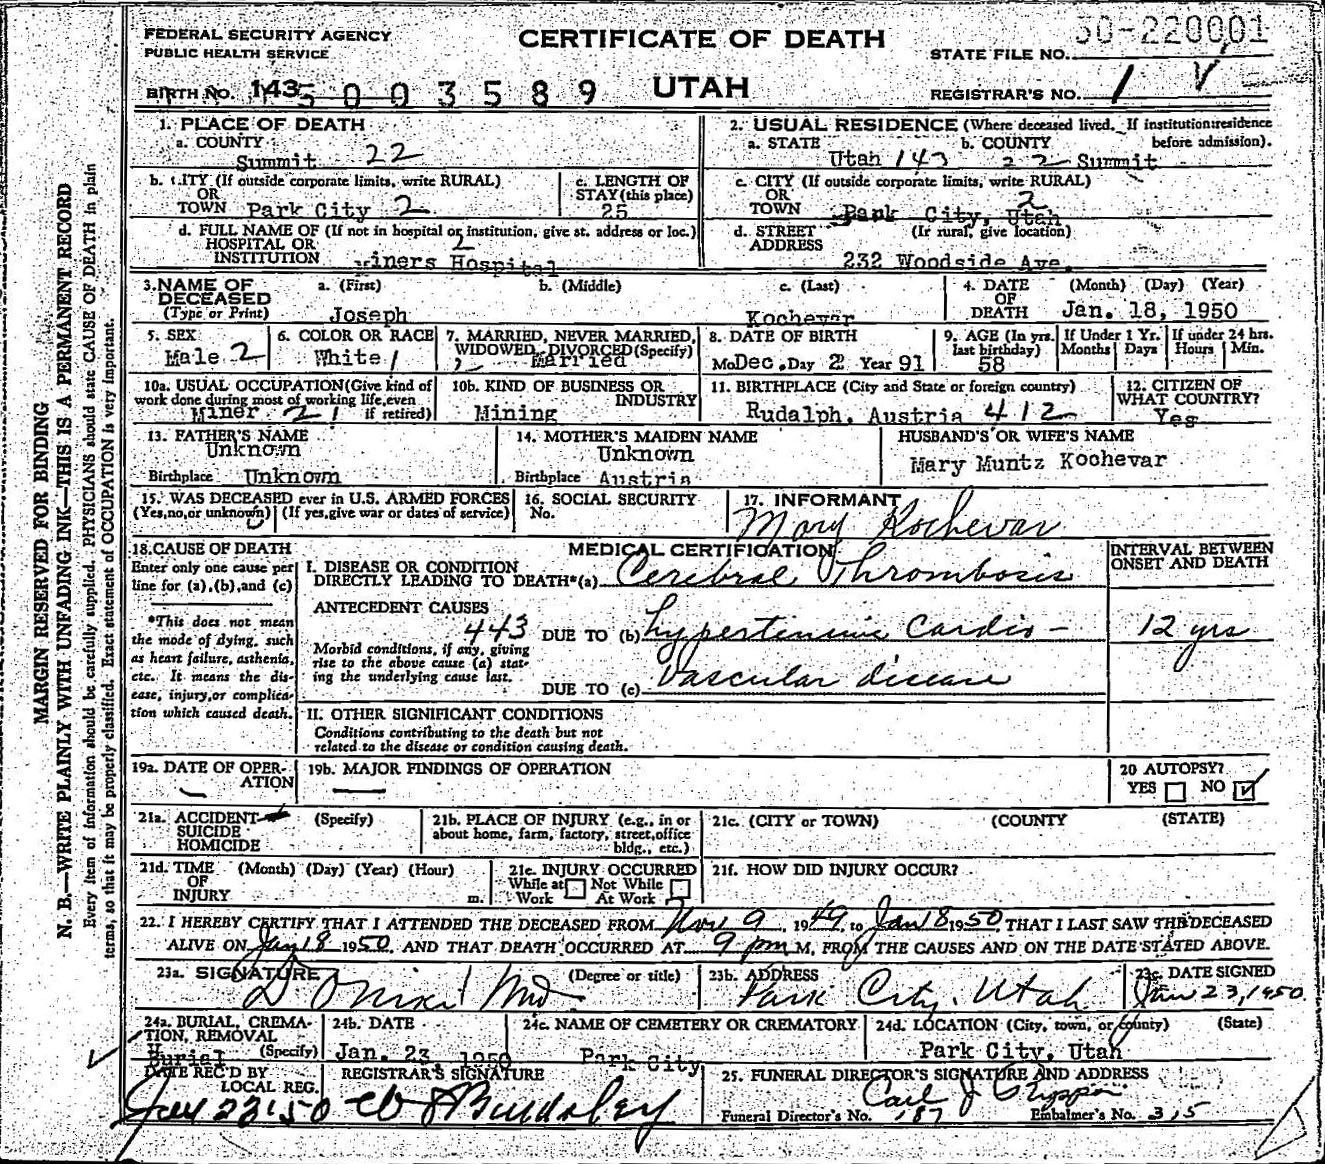 FEDERAL SECURITY AGENCY
PUBLIC HEALTH SERVICE
CERTIFICATE OF DEATH
STATE FILE NO. 50-220001
BIRTH NO. 143 5 0 0 3 5 8 9
UTAH
REGISTRAR'S NO. 1 V
MARGIN RESERVED FOR BINDING
N. B.—WRITE PLAINLY WITH UNFADING INK—THIS IS A PERMANENT RECORD
Every item of information should be carefully supplied. PHYSICIANS should state CAUSE OF DEATH in plain
terms, so that it may be properly classified. Exact statement of OCCUPATION is very important.
1. PLACE OF DEATH
a. COUNTY
Summit 22
2. USUAL RESIDENCE (Where deceased lived. If institution:residence before admission).
a. STATE b. COUNTY
Utah 143 22 Summit
b. CITY (If outside corporate limits, write RURAL)
OR
TOWN Park City 2
c. LENGTH OF
STAY (this place)
25
c. CITY (If outside corporate limits, write RURAL)
OR 2
TOWN Park City, Utah
d. FULL NAME OF (If not in hospital or institution, give st. address or loc.)
HOSPITAL OR 2
INSTITUTION Miners Hospital
d. STREET (If rural, give location)
ADDRESS
232 Woodside Ave.
3. NAME OF DECEASED
(Type or Print)
a. (First) b. (Middle) c. (Last)
Joseph Kochevar
4. DATE OF DEATH
(Month) (Day) (Year)
Jan. 18, 1950
5. SEX
Male 2
6. COLOR OR RACE
White 1
7. MARRIED, NEVER MARRIED,
WIDOWED, DIVORCED (Specify)
Married
8. DATE OF BIRTH
Mo Dec. Day 2 Year 91
9. AGE (In yrs. last birthday)
58
If Under 1 Yr. Months Days
If under 24 hrs. Hours Min.
10a. USUAL OCCUPATION (Give kind of
work done during most of working life, even
if retired)
Miner 21
10b. KIND OF BUSINESS OR
INDUSTRY
Mining
11. BIRTHPLACE (City and State or foreign country)
Rudalph, Austria 412
12. CITIZEN OF
WHAT COUNTRY?
Yes
13. FATHER'S NAME
Unknown
Birthplace Unknown
14. MOTHER'S MAIDEN NAME
Unknown
Birthplace Austria
HUSBAND'S OR WIFE'S NAME
Mary Muntz Kochevar
15. WAS DECEASED ever in U.S. ARMED FORCES
(Yes, no, or unknown) (If yes, give war or dates of service)
16. SOCIAL SECURITY
No.
17. INFORMANT
Mary Kochevar
18. CAUSE OF DEATH
Enter only one cause per
line for (a), (b), and (c)
*This does not mean
the mode of dying, such
as heart failure, asthenia,
etc. It means the dis-
ease, injury, or complica-
tion which caused death.
MEDICAL CERTIFICATION
INTERVAL BETWEEN
ONSET AND DEATH
I. DISEASE OR CONDITION
DIRECTLY LEADING TO DEATH*(a) Cerebral Thrombosis
ANTECEDENT CAUSES
443 DUE TO (b) Hypertensive Cardio- 12 yrs
Morbid conditions, if any, giving
rise to the above cause (a) stat-
ing the underlying cause last.
Vascular disease
DUE TO (c)
II. OTHER SIGNIFICANT CONDITIONS
Conditions contributing to the death but not
related to the disease or condition causing death.
19a. DATE OF OPER-
ATION
19b. MAJOR FINDINGS OF OPERATION
20 AUTOPSY?
YES NO ✓
21a. ACCIDENT (Specify)
SUICIDE
HOMICIDE
21b. PLACE OF INJURY (e.g., in or
about home, farm, factory, street, office
bldg., etc.)
21c. (CITY or TOWN) (COUNTY (STATE)
21d. TIME (Month) (Day) (Year) (Hour)
OF
INJURY m.
21e. INJURY OCCURRED
While at Work Not While At Work
21f. HOW DID INJURY OCCUR?
22. I HEREBY CERTIFY THAT I ATTENDED THE DECEASED FROM Nov 9, 1949, to Jan 18 1950, THAT I LAST SAW THE DECEASED
ALIVE ON Jan 18 1950, AND THAT DEATH OCCURRED AT 9 pm M, FROM THE CAUSES AND ON THE DATE STATED ABOVE.
23a. SIGNATURE (Degree or title)
23b. ADDRESS
Park City, Utah
23c. DATE SIGNED
Jan 23, 1950
24a. BURIAL, CREMA-
TION, REMOVAL
(Specify)
Burial
24b. DATE
Jan. 23, 1950
24c. NAME OF CEMETERY OR CREMATORY
Park City
24d. LOCATION (City, town, or county) (State)
Park City, Utah
DATE REC'D BY
LOCAL REG.
Jan 23 '50
REGISTRAR'S SIGNATURE
25. FUNERAL DIRECTOR'S SIGNATURE AND ADDRESS
Carl J
Funeral Director's No. 187 Embalmer's No. 315